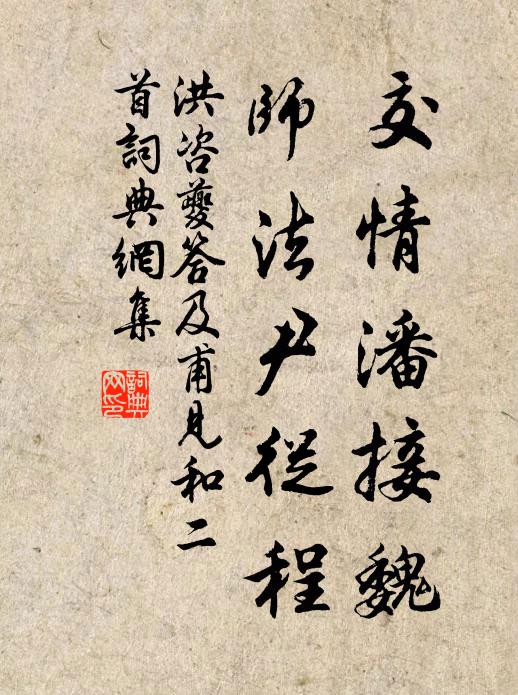 交情潘接魏
師法尹從程
洪咨夔答及甫見和二
首詞典網集
詞典
網印